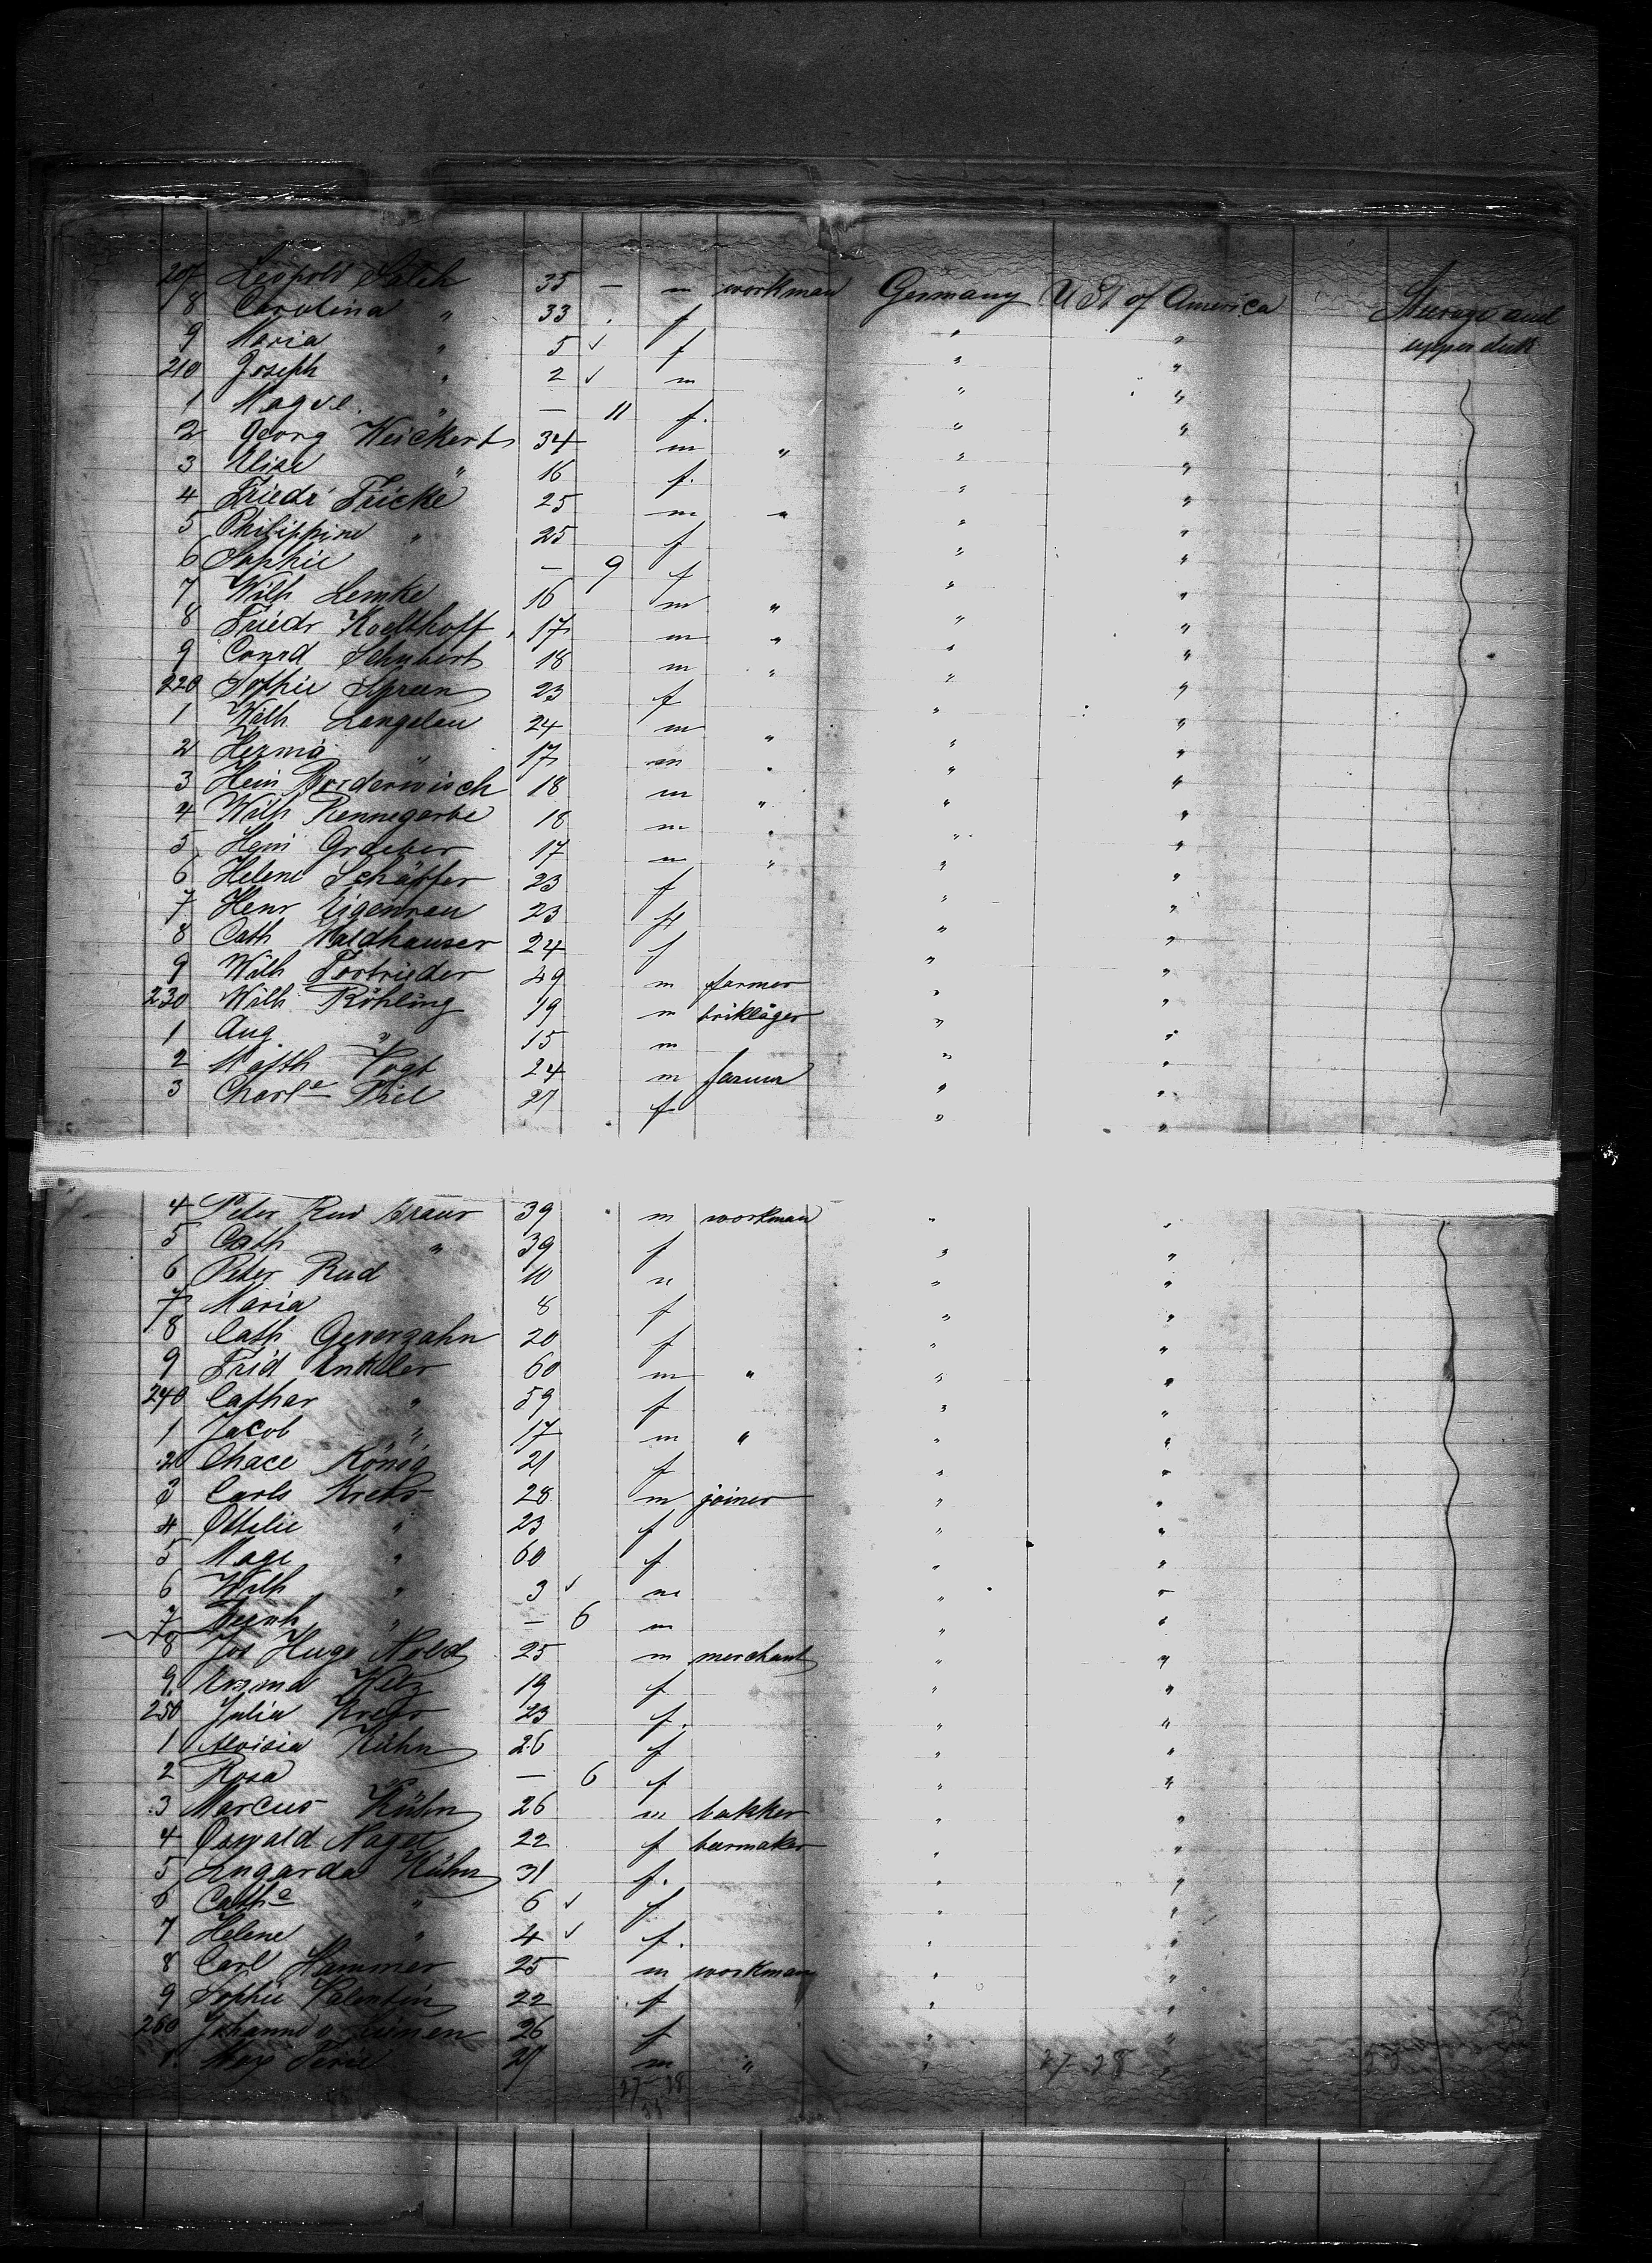 207 Leopold Salch 35 — m workman Germany U St of America Steerage and
8 Carolina " 33 f " " upper deck
9 Maria " 5 f " "
210 Joseph " 2 m " "
1 Magd. " — 11 f. " "
2 Georg Weickert 34 m " " "
3 Elise " 16 f. " "
4 Friedr Fricke 25 m " " "
5 Philippine " 25 f " "
6 Sophie — 9 f " "
7 Wilh Lemke 16 m " " "
8 Friedr Koelthoff 17 m " " "
9 Conrd Schubert 18 m " " "
220 Sophie Spreen 23 f " "
1 Wilh Langelau 24 m " " "
2 Herma " 17 m " " "
3 Hein Borderwisch 18 m " " "
4 Wilh Rennegarbe 18 m " " "
5 Hein Graeber 17 m " " "
6 Helene Schäffer 23 f " "
7 Henr Eigenrau 23 f " "
8 Cath Waldhauser 24 f " "
9 Wilh Fortrieder 49 m farmer " "
230 Wilh Röhling 19 m brikläger " "
1 Aug " 15 m " "
2 Matth Vogt 24 m farmer " "
3 Charle Thil 27 f " "
4 Peter Rud Braur 39 m workman " "
5 Cath " 39 f " "
6 Peter Rud 10 m " "
7 Maria 8 f " "
8 Cath Geverzahn 20 f " "
9 Frid Inkller 60 m " " "
240 Cathar " 59 f " "
1 Jacob " 17 m " " "
2 Chace König 21 f " "
3 Carls Krebs 28 m joiner " "
4 Ottilie " 23 f " "
5 Mage " 60 f " "
6 Wilh " 3 m " "
7 Bernh " — 6 m " "
8 Jos Hugo Nold 25 m merchant " "
9 Emma Kilz 19 f " "
250 Julia Krebs 23 f. " "
1 Aloisia Kühn 26 f " "
2 Rosa " — 6 f " "
3 Marcus Kühn 26 m bakker " "
4 Oswald Nagel 22 f beermaker " "
5 Lugarda Kühn 31 f. " "
6 Cathe " 6 f " "
7 Helene " 4 f. " "
8 Carl Hammer 25 m workman " "
9 Sophie Valentin 22 f " "
260 Johanne v Lienen 26 f " "
1. 27 m " " 27-28 "
27 28